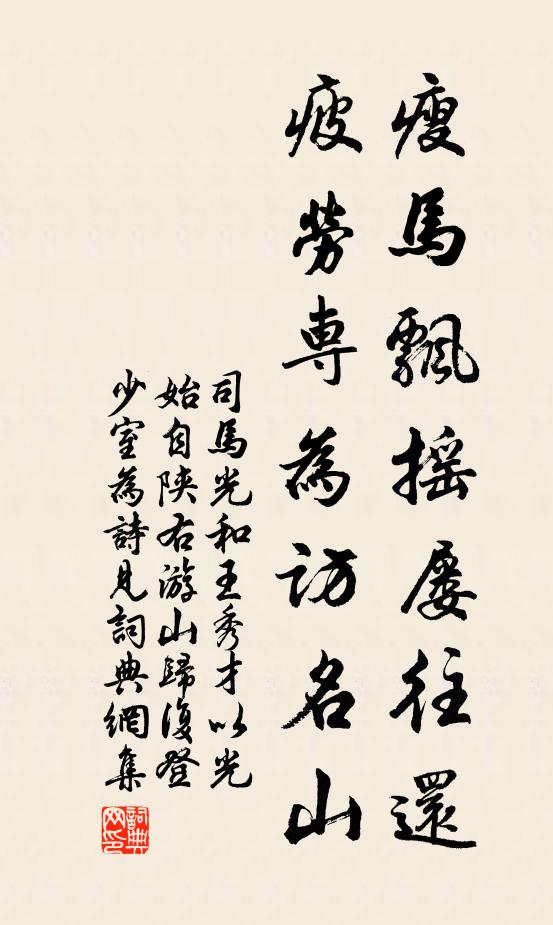 瘦馬飄搖屢往還
疲勞專為訪名山
司馬光和王秀才以光
始自陝右游山歸復登
少室為詩見詞典網集
詞典网印